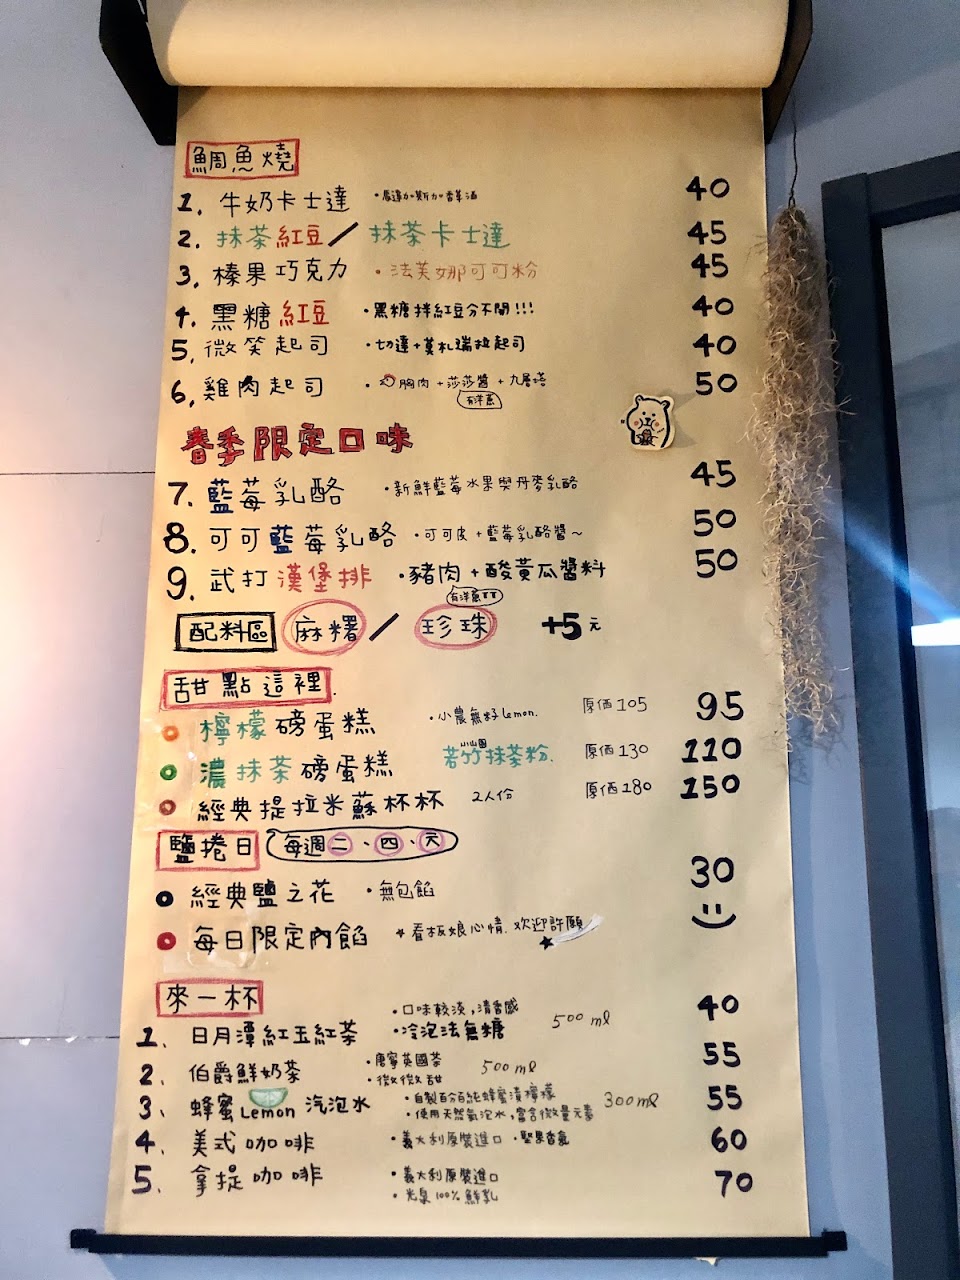 鯛魚燒
1. 牛奶卡士達 ・馬達加斯加香草酒 40
2. 抹茶紅豆/抹茶卡士達 45
3. 榛果巧克力 ・法芙娜可可粉 45
4. 黑糖紅豆 ・黑糖拌紅豆分不開!!! 40
5. 微笑起司 ・切達+莫札瑞拉起司 40
6. 雞肉起司 ・胸肉+莎莎醬+九層塔 50
有洋蔥
春季限定口味
7. 藍莓乳酪 ・新鮮藍莓水果與丹麥乳酪 45
8. 可可藍莓乳酪 ・可可皮+藍莓乳酪醬~ 50
9. 武打漢堡排 ・豬肉+酸黃瓜醬料 50
有洋蔥
配料區 麻糬/珍珠 +5元
甜點這裡
檸檬磅蛋糕 ・小農無籽Lemon. 原価105 95
小山園
濃抹茶磅蛋糕 若竹抹茶粉. 原価130 110
經典提拉米蘇杯杯 2人份 原価180 150
鹽捲日 每週二、四、六
經典鹽之花 ・無包餡 30
每日限定內餡 ★看板娘心情.欢迎許願★
來一杯
1. 日月潭紅玉紅茶 ・口味較淡,清香感 500ml 40
・冷泡法無糖
2. 伯爵鮮奶茶 ・唐寧英國茶 500ml 55
・微微甜
3. 蜂蜜Lemon汽泡水 ・自製百分百純蜂蜜漬檸檬 300ml 55
・使用天然氣泡水,富含微量元素
4. 美式咖啡 ・義大利原裝進口 ・堅果香氣 60
5. 拿提咖啡 ・義大利原裝進口 70
・光泉100%鮮乳